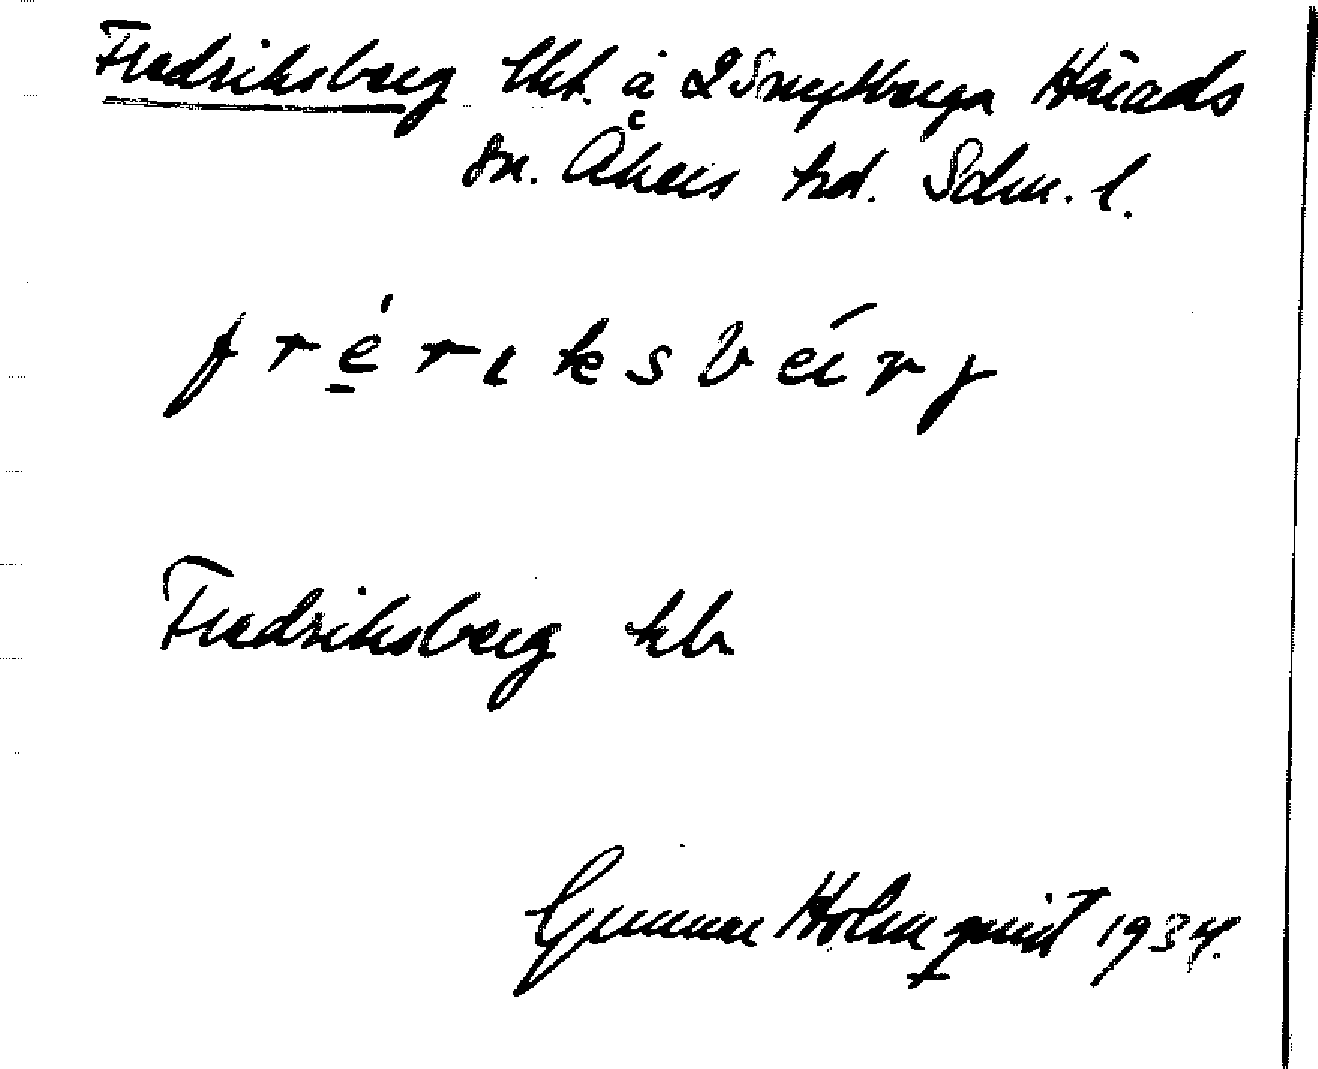 Fredriksberg lht. å 2 Smytberga Härads
sn. Åkers hd. Sdm. l.
fré̱rıksbæ̀rj
Fredriksberg kb
Gunnar Holmquist 1934.